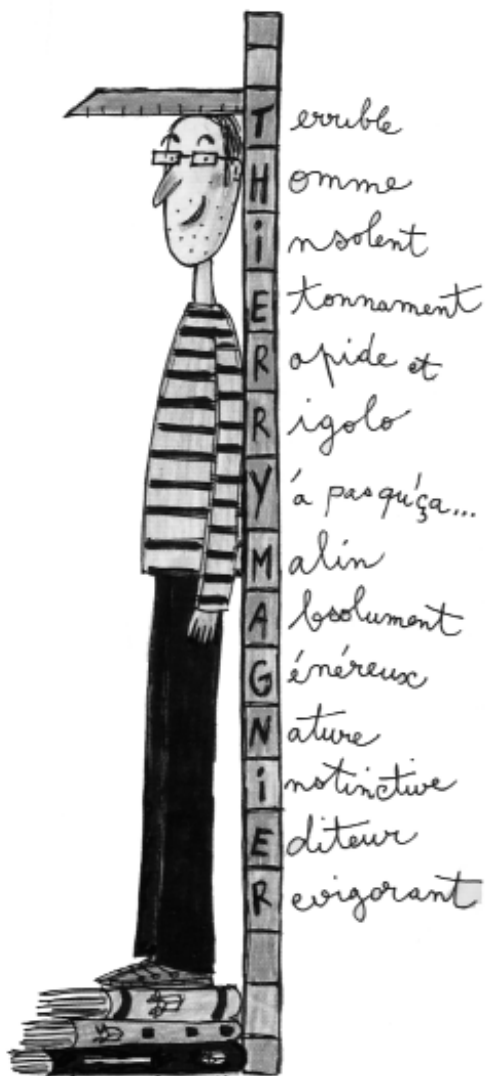 Terrible
Homme
insolent
Etonnament
Rapide et
Rigolo
Y'a pas qu'ça...
Malin
Absolument
Généreux
Nature
instinctive
Editeur
Revigorant